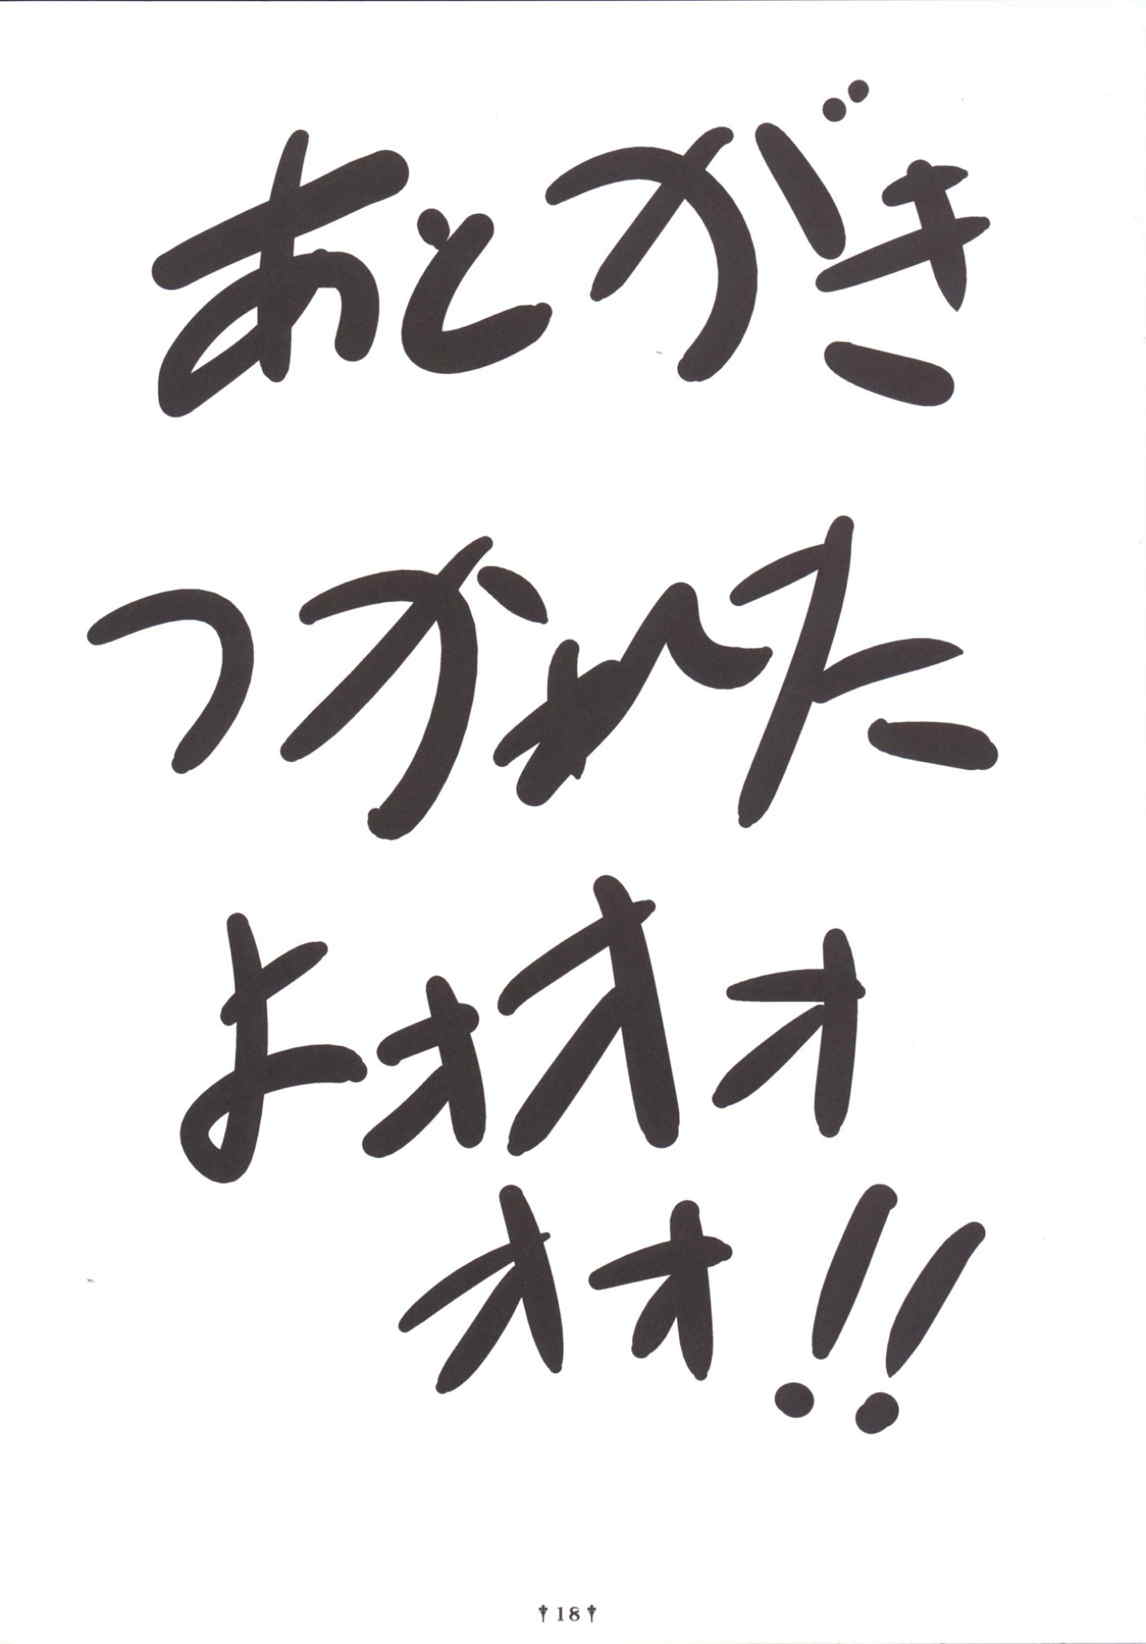 あとがき
つかれた
よオオオ
オオ!!
18